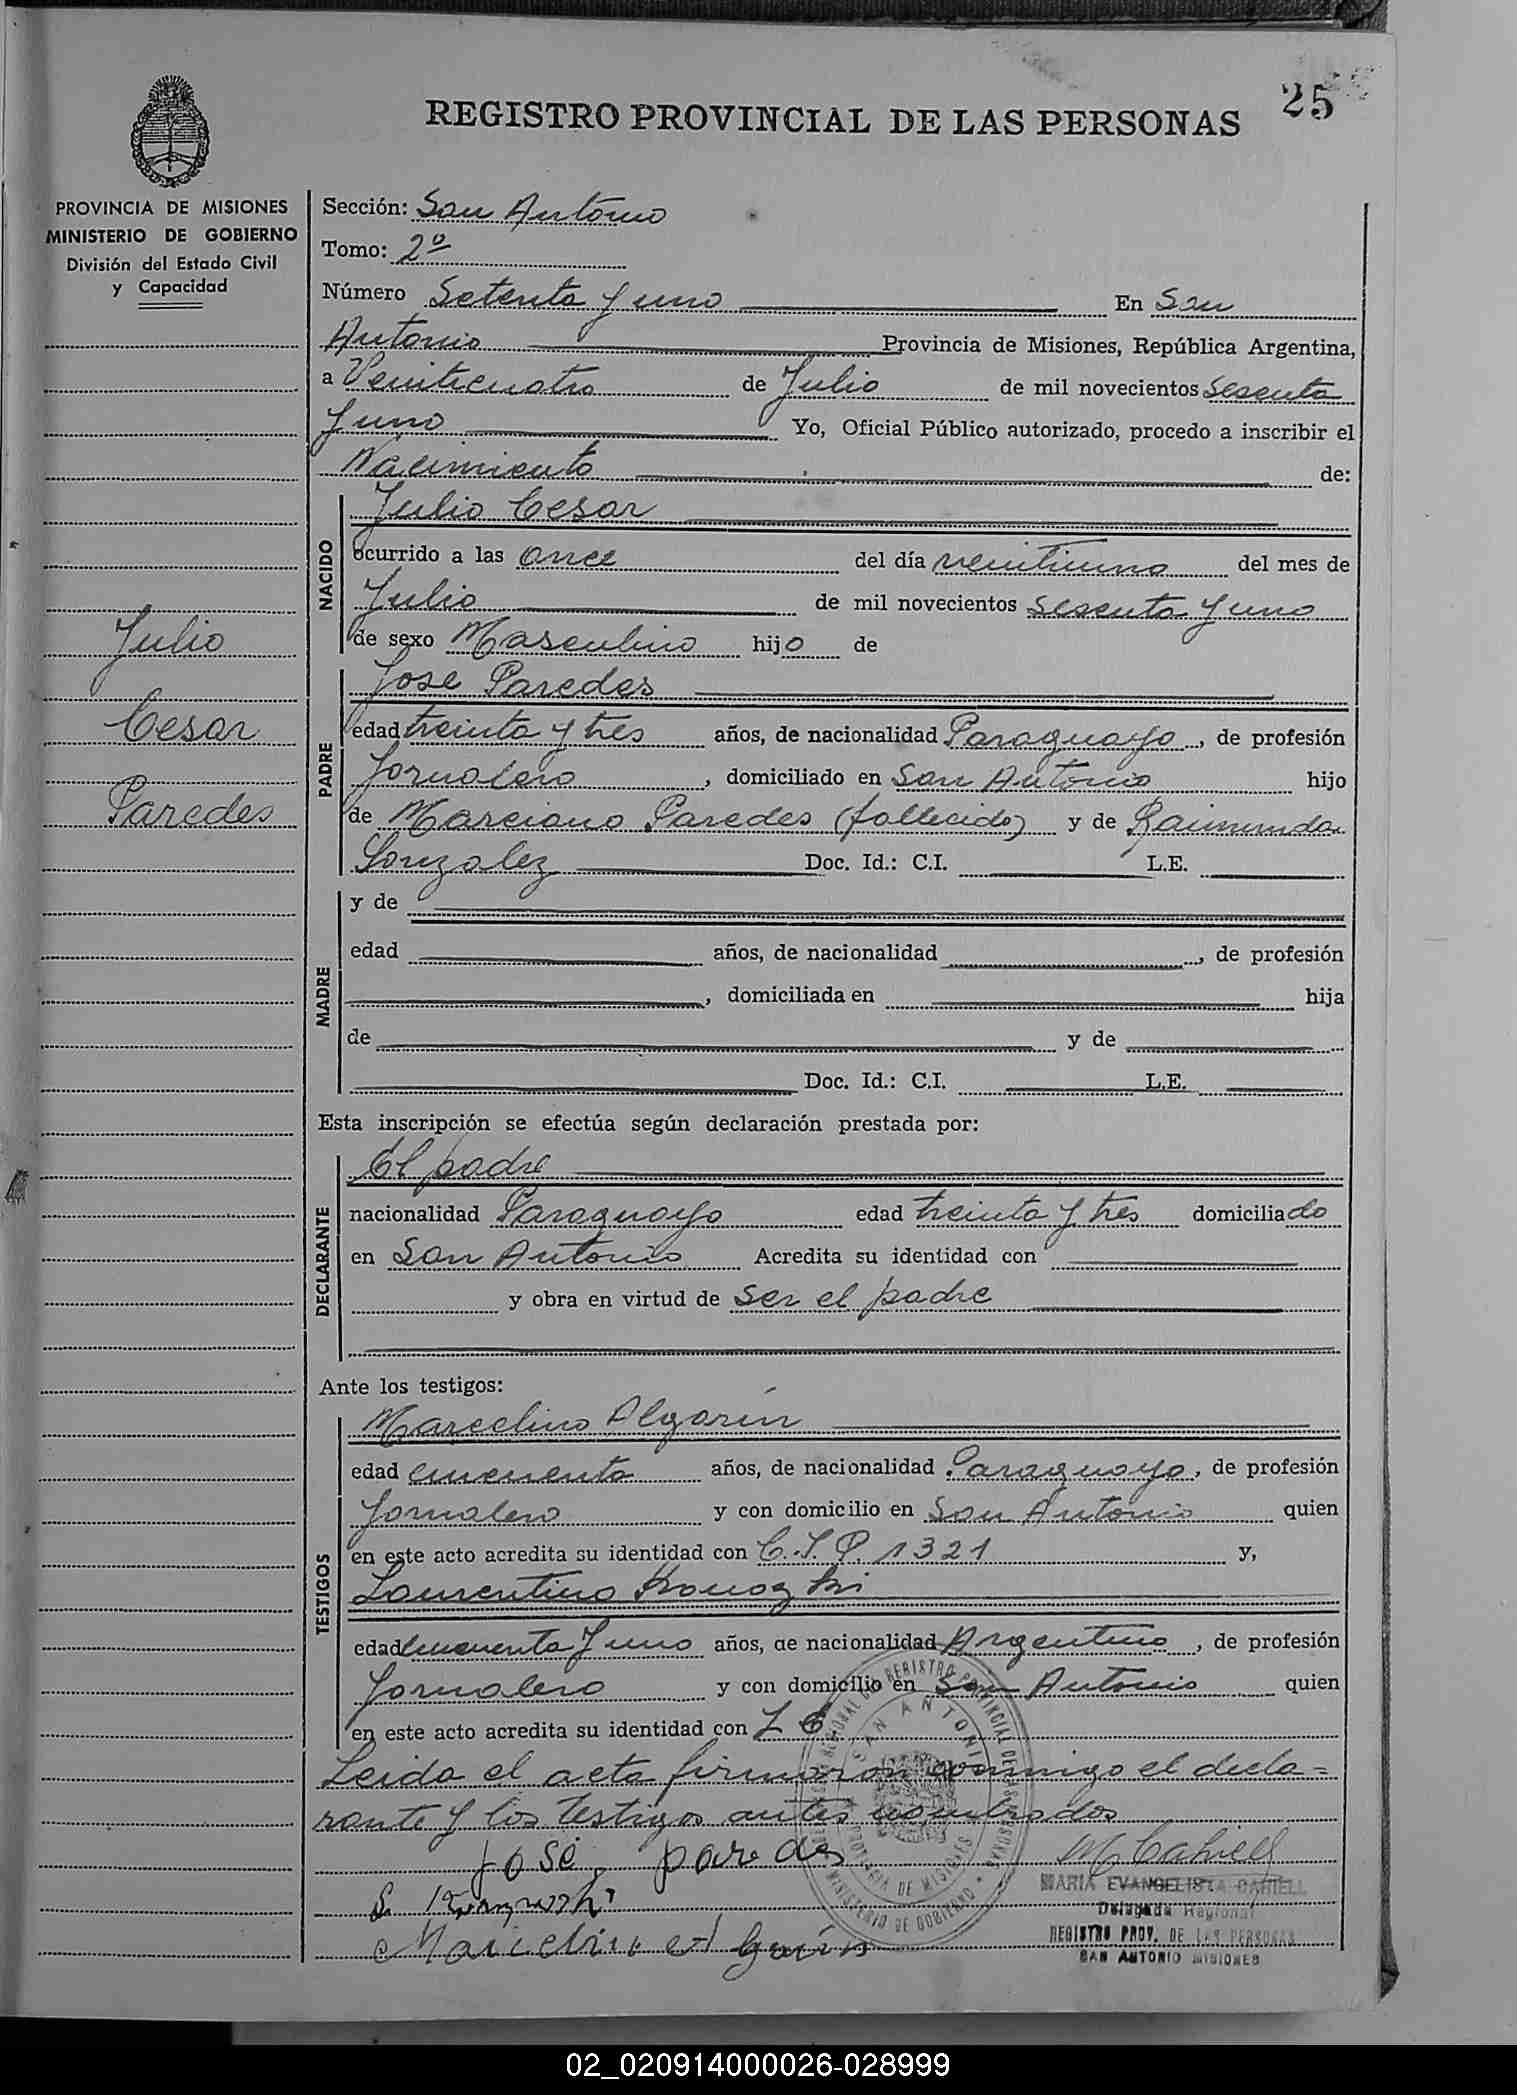 REGISTRO PROVINCIAL DE LAS PERSONAS
25
PROVINCIA DE MISIONES
MINISTERIO DE GOBIERNO
División del Estado Civil
y Capacidad
Julio
Cesar
Paredes
Sección: San Antonio
Tomo: 2º
Número Setenta y uno En San
Antonio Provincia de Misiones, República Argentina,
a Veinticuatro de Julio de mil novecientos Sesenta
y uno Yo, Oficial Público autorizado, procedo a inscribir el
Nacimiento de:
NACIDO
Julio Cesar
ocurrido a las once del día veintiuno del mes de
Julio de mil novecientos Sesenta y uno
de sexo Masculino hijo de
PADRE
Jose Paredes
edad treinta y tres años, de nacionalidad Paraguayo, de profesión
Jornalero, domiciliado en San Antonio hijo
de Marciano Paredes (fallecido) y de Raimunda
Gonzalez Doc. Id.: C.I. L.E.
MADRE
y de
edad años, de nacionalidad , de profesión
, domiciliada en hija
de y de
Doc. Id.: C.I. L.E.
Esta inscripción se efectúa según declaración prestada por:
DECLARANTE
El padre
nacionalidad Paraguayo edad treinta y tres domiciliado
en San Antonio Acredita su identidad con
y obra en virtud de ser el padre
Ante los testigos:
TESTIGOS
Marcelino Algarín
edad cincuenta años, de nacionalidad Paraguayo, de profesión
Jornalero y con domicilio en San Antonio quien
en este acto acredita su identidad con C.I.P. 1321 y,
Laurentino
edad cincuenta y uno años, de nacionalidad Argentino, de profesión
Jornalero y con domicilio en San Antonio quien
en este acto acredita su identidad con
Leida el acta firmaron conmigo el decla=
rante y los testigos antes nombrados
José, paredes
M Cahiell
MARIA EVANGELISTA CAHIELL
Delegada Regional
REGISTRO PROV. DE LAS PERSONAS
SAN ANTONIO MISIONES
Marcelino Algarín
REGISTRO PROVINCIAL DE LAS PERSONAS
SAN ANTONIO
PROVINCIA DE MISIONES
MINISTERIO DE GOBIERNO
02_020914000026-028999